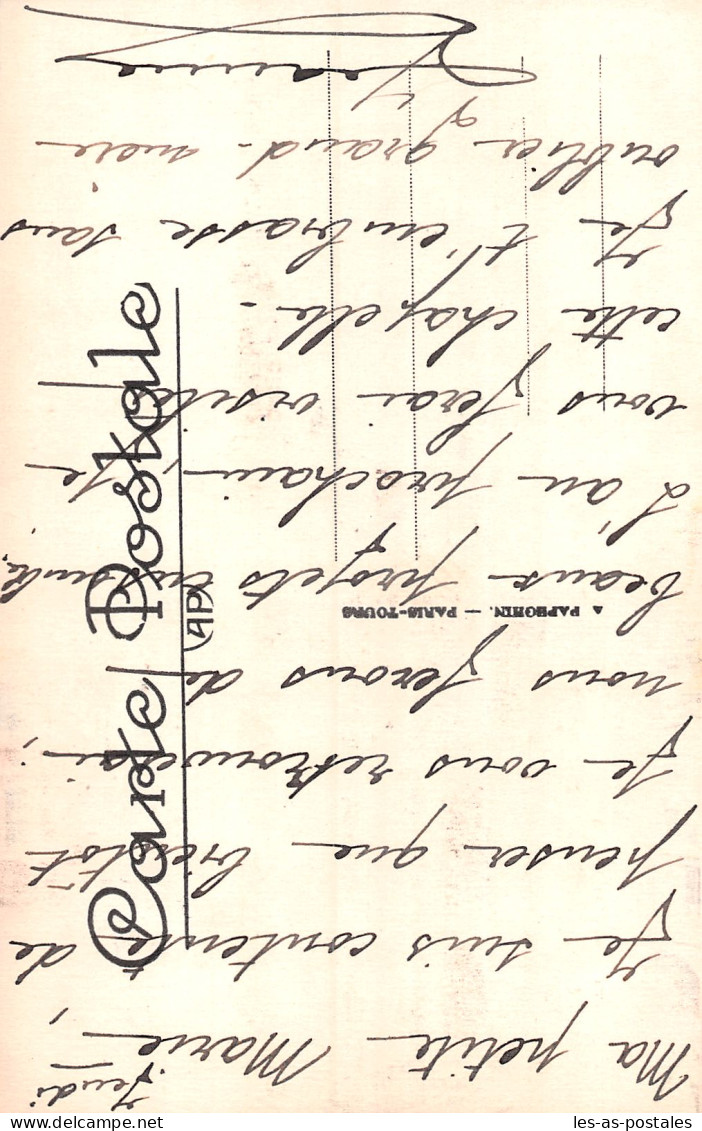 Jeudi
Ma petite Marie,
Je suis contente de
penser que bientôt
je vous retrouverai ;
nous ferons de
beaux projets ensemble.
L'an prochain, je
vous ferai visiter
cette chapelle.
Je t'embrasse sans
oublier grand-mère
Carte Postale
AP
A PAPEGHIN. — PARIS-TOURS
les-as-postales.com